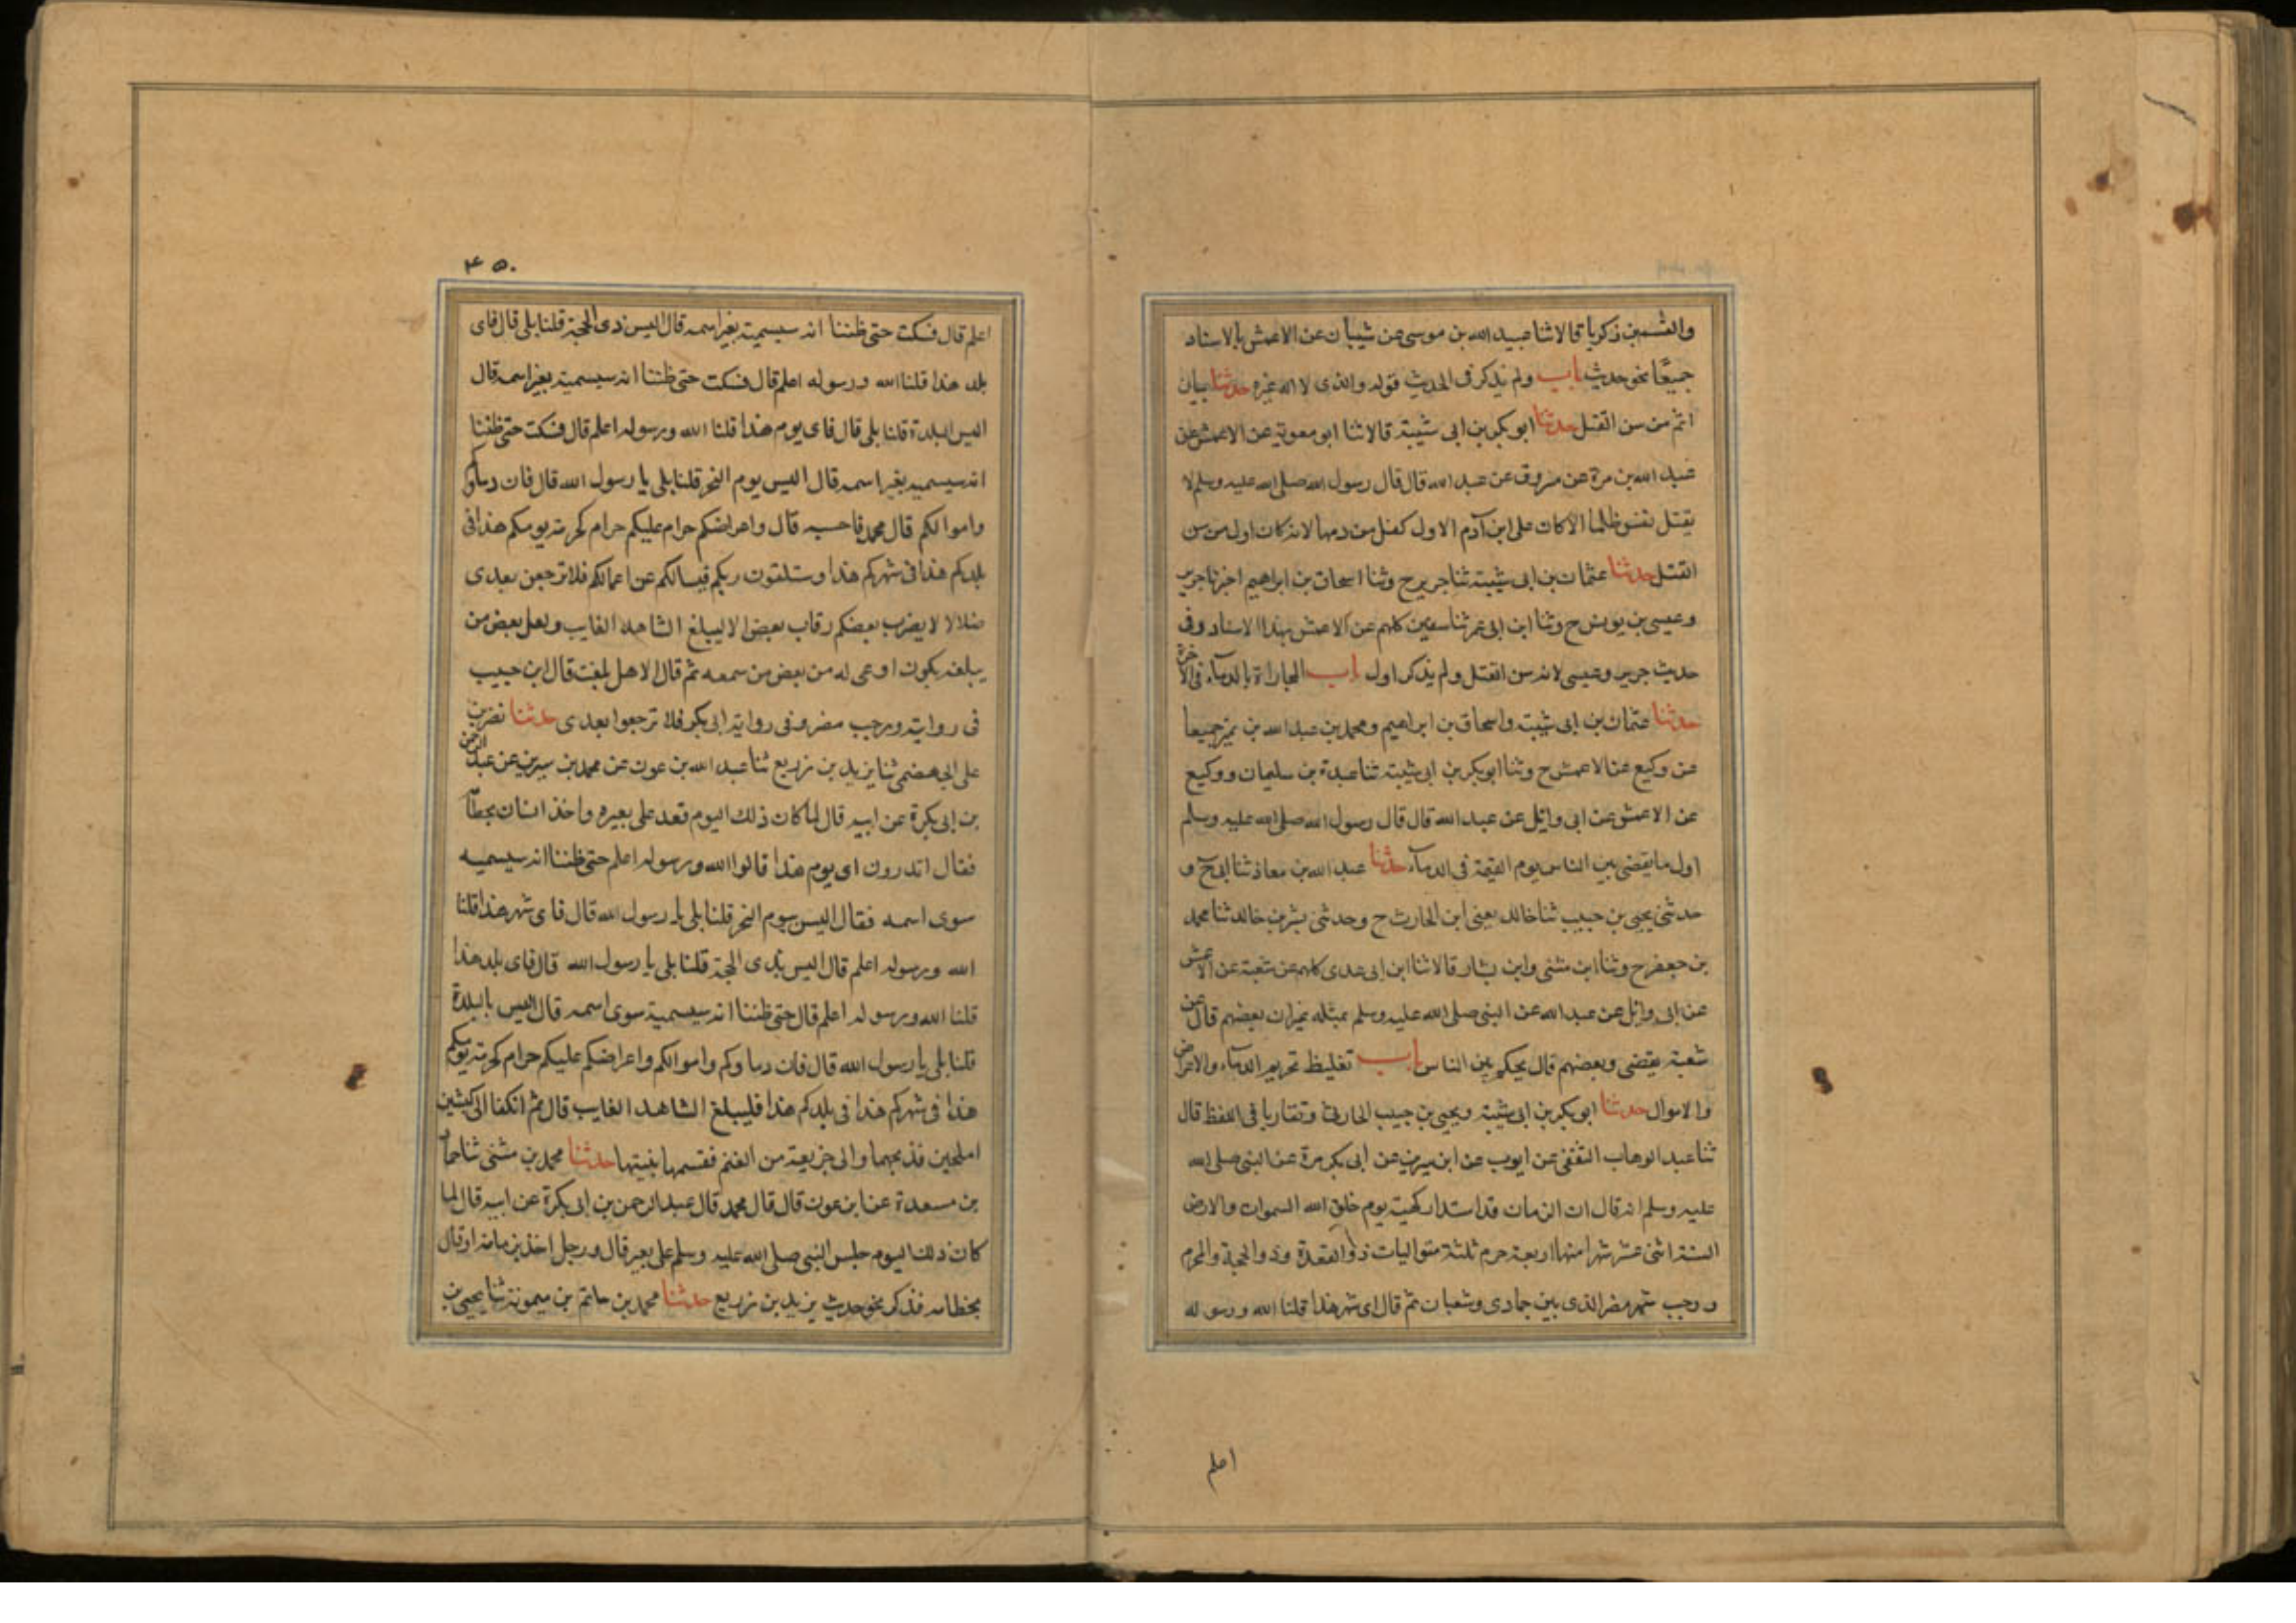 والقسم بن زكريا قالا ثنا عبيد الله بن موسى عن شيبان عن الاعمش بالاسناد
جميعًا نحو حديث باب ولم يذكر فى الحديث قوله والذى لا اله غيره حدثنا بيان
اثم من سن القتل حدثنا ابو بكر بن ابى شيبة قالا ثنا ابو معوية عن الاعمش عن
عبد الله بن مرة عن مسروق عن عبد الله قال قال رسول الله صلى الله عليه وسلم لا
يقتل نفس ظلما الا كان على ابن آدم الاول كفل من دمها لانه كان اول من سن
القتل حدثنا عثمان بن ابى شيبة ثنا جرير ح وثنا اسحاق بن ابراهيم اخبرنا جرير
وعيسى بن يونس ح وثنا ابن ابى عمر ثنا سفين كلهم عن الاعمش بهذا الاسناد وفى
حديث جرير وعيسى لانه سن القتل ولم يذكر اول باب المجاراة بالدماء فى الآخرة
حدثنا عثمان بن ابى شيبة واسحاق بن ابراهيم ومحمد بن عبد الله بن نمير جميعا
عن وكيع عن الاعمش ح وثنا ابو بكر بن ابى شيبة ثنا عبدة بن سليمان ووكيع
عن الاعمش عن ابى وائل عن عبد الله قال قال رسول الله صلى الله عليه وسلم
اول ما يقضى بين الناس يوم القيمة فى الدماء حدثنا عبد الله بن معاذ ثنا ابى ح و
حدثنى يحيى بن حبيب ثنا خالد يعنى ابن الحارث ح وحدثنى بشر بن خالد ثنا محمد
بن جعفر ح وثنا ابن مثنى وابن بشار قالا ثنا ابن ابى عدى كلهم عن شعبة عن الاعمش
عن ابى وائل عن عبد الله عن النبى صلى الله عليه وسلم بمثله غير ان بعضهم قال عن
شعبة يقضى وبعضهم قال يحكم بين الناس باب تغليظ تحريم الدماء والاعراض
والاموال حدثنا ابو بكر بن ابى شيبة ويحيى بن حبيب الحارثى وتقاربا فى اللفظ قال
ثنا عبد الوهاب الثقفى عن ايوب عن ابن سيرين عن ابى بكرة عن النبى صلى الله
عليه وسلم انه قال ان الزمان قد استدار كهيئة يوم خلق الله السموات والارض
السنة اثنى عشر شهرا منها اربعة حرم ثلثة متواليات ذو القعدة وذو الحجة والمحرم
ورجب شهر مضر الذى بين جمادى وشعبان ثم قال اى شهر هذا قلنا الله ورسوله
اعلم
٤٥٠
اعلم قال فسكت حتى ظننا انه سيسميه بغير اسمه قال اليس ذى الحجة قلنا بلى قال فاى
بلد هذا قلنا الله ورسوله اعلم قال فسكت حتى ظننا انه سيسميه بغير اسمه قال
اليس البلدة قلنا بلى قال فاى يوم هذا قلنا الله ورسوله اعلم قال فسكت حتى ظننا
انه سيسميه بغير اسمه قال اليس يوم النحر قلنا بلى يا رسول الله قال فان دماؤكم
واموالكم قال محمد فاحسبه قال واعراضكم حرام عليكم حرام كحرمة يومكم هذا فى
بلدكم هذا فى شهركم هذا وستلقون ربكم فيسالكم عن اعمالكم فلا ترجعن بعدى
ضلالا لا يضرب بعضكم رقاب بعض الا ليبلغ الشاهد الغايب ولعل بعض من
يبلغه يكون اوعى له من بعض من سمعه ثم قال الا هل بلغت قال ابن حبيب
فى روايته ورجب مضر وفى رواية ابى بكر فلا ترجعوا بعدى حدثنا نصر بن
على الجهضمى ثنا يزيد بن زريع ثنا عبد الله بن عون عن محمد بن سيرين عن عبد الرحمن
بن ابى بكرة عن ابيه قال لما كان ذلك اليوم قعد على بعيره واخذ انسان بخطامه
فقال اتدرون اى يوم هذا قالوا الله ورسوله اعلم حتى ظننا انه سيسميه
سوى اسمه فقال اليس بيوم النحر قلنا بلى يا رسول الله قال فاى شهر هذا قلنا
الله ورسوله اعلم قال اليس بذى الحجة قلنا بلى يا رسول الله قال فاى بلد هذا
قلنا الله ورسوله اعلم قال حتى ظننا انه سيسميه سوى اسمه قال اليس بالبلدة
قلنا بلى يا رسول الله قال فان دماوكم واموالكم واعراضكم عليكم حرام كحرمة يومكم
هذا فى شهركم هذا فى بلدكم هذا فليبلغ الشاهد الغايب قال ثم انكفا الى كبشين
املحين فذبحهما والى جزيعة من الغنم فقسمها بيننا حدثنا محمد بن مثنى ثنا حماد
بن مسعدة عن ابن عون قال قال محمد قال عبد الرحمن بن ابى بكرة عن ابيه قال لما
كان ذلك اليوم جلس النبى صلى الله عليه وسلم على بعير قال ورجل اخذ بزمامه او قال
بخطامه فذكر نحو حديث يزيد بن زريع حدثنا محمد بن حاتم بن ميمونة ثنا يحيى بن